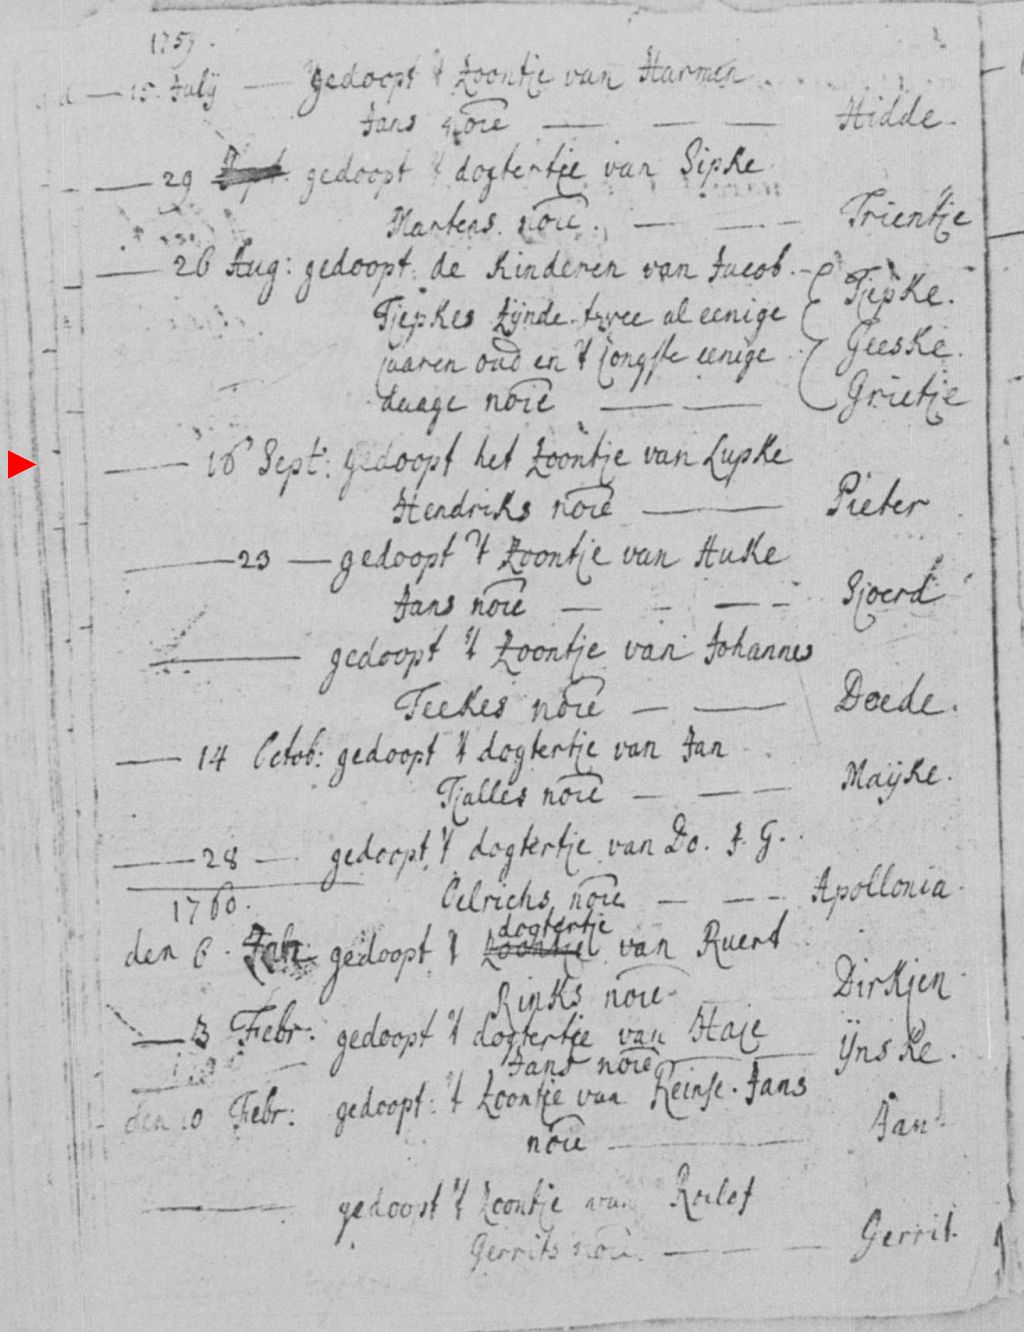 1759.
15. Julij gedoopt 't zoontje van Harmen
Jans noie Hidde.
29 gedoopt 't dogtertje van Sipke
Martens. noie. Trientje
26 Aug: gedoopt de kinderen van Jacob. Tjepke.
Tjepkes zijnde twee al eenige
jaaren oud en 't jongste eenige Geeske.
daage noie Grietje
16 Sept: gedoopt het zoontje van Lupke
Hendriks noie Pieter
23 gedoopt 't zoontje van Auke
Jans noie Sjoerd
gedoopt 't zoontje van Johannes
Teekes noie Doede.
14 Octob: gedoopt 't dogtertje van Jan
Tjalles noie Maijke.
28 gedoopt 't dogtertje van Do. J. G.
Oelrichs noie Apollonia.
1760.
dogtertje
den 6. Jan: gedoopt 't zoontje van Ruert
Rinks noie Dirkjen
3 Febr: gedoopt 't dogtertje van Haie
Jans noie IJnske.
den 10 Febr: gedoopt 't zoontje van Reinse. Jans
noie Jan
gedoopt 't zoontje van Roelof
Gerrits noie. Gerrit.